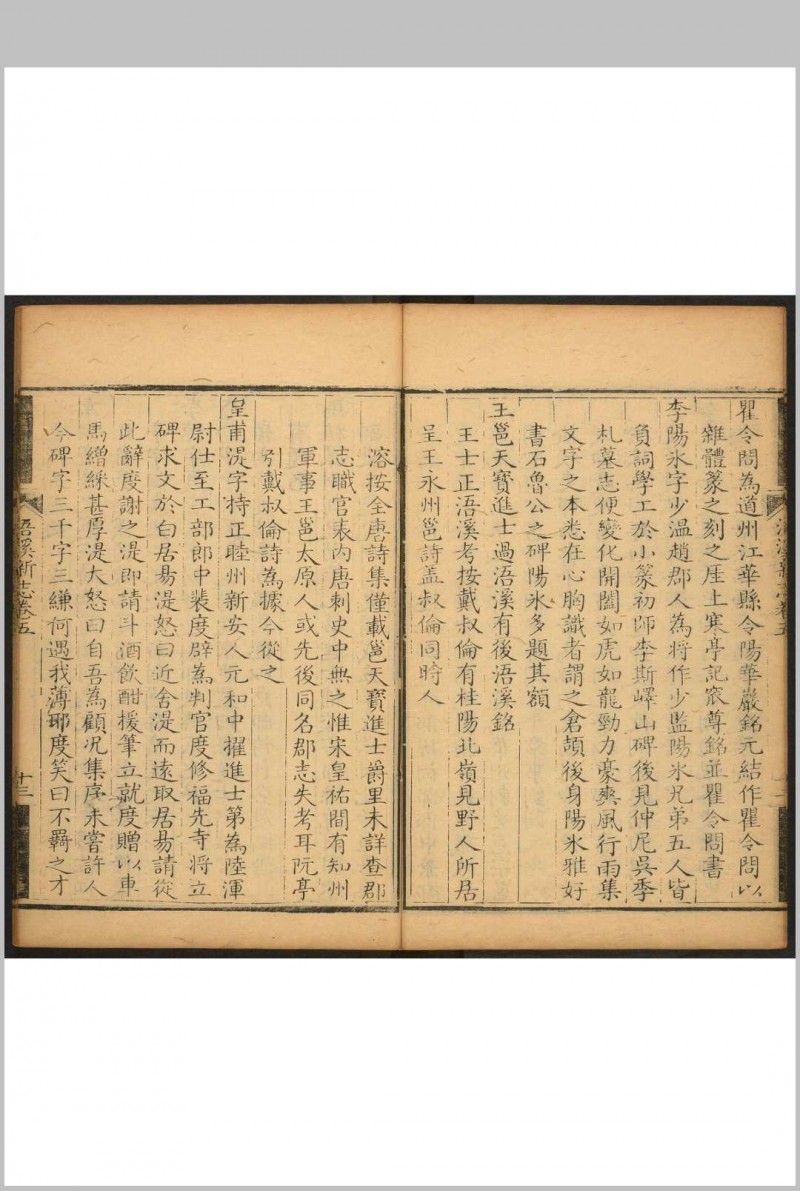 瞿令問為道州江華縣令陽華巖銘元結作瞿令問以
雜體篆之刻之厓上寒亭記窊尊銘並瞿令問書
李陽氷字少温趙郡人為將作少監陽氷兄弟五人皆
負詞學工於小篆初師李斯嶧山碑後見仲尼吳季
札墓志便變化開闔如虎如龍勁力豪爽風行雨集
文字之本悉在心胸識者謂之倉頡後身陽氷雅好
書石魯公之碑陽氷多題其額
王邕天寶進士過浯溪有後浯溪銘
王士正浯溪考按戴叔倫有桂陽北嶺見野人所居
呈王永州邕詩盖叔倫同時人
溶按全唐詩集僅載邕天寶進士爵里未詳查郡
志職官表內唐刺史中無之惟宋皇祐間有知州
軍事王邕太原人或先後同名郡志失考耳阮亭
引戴叔倫詩為據今從之
皇甫湜字持正睦州新安人元和中擢進士第為陸渾
尉仕至工部郎中裴度辟為判官度修福先寺將立
碑求文於白居易湜怒曰近舍湜而遠取居易請從
此辭度謝之湜即請斗酒飲酣援筆立就度贈以車
馬繒綵甚厚湜大怒曰自吾為顧况集序未嘗許人
今碑字三千字三縑何遇我薄耶度笑曰不羈之才
浯溪新志卷五
十三